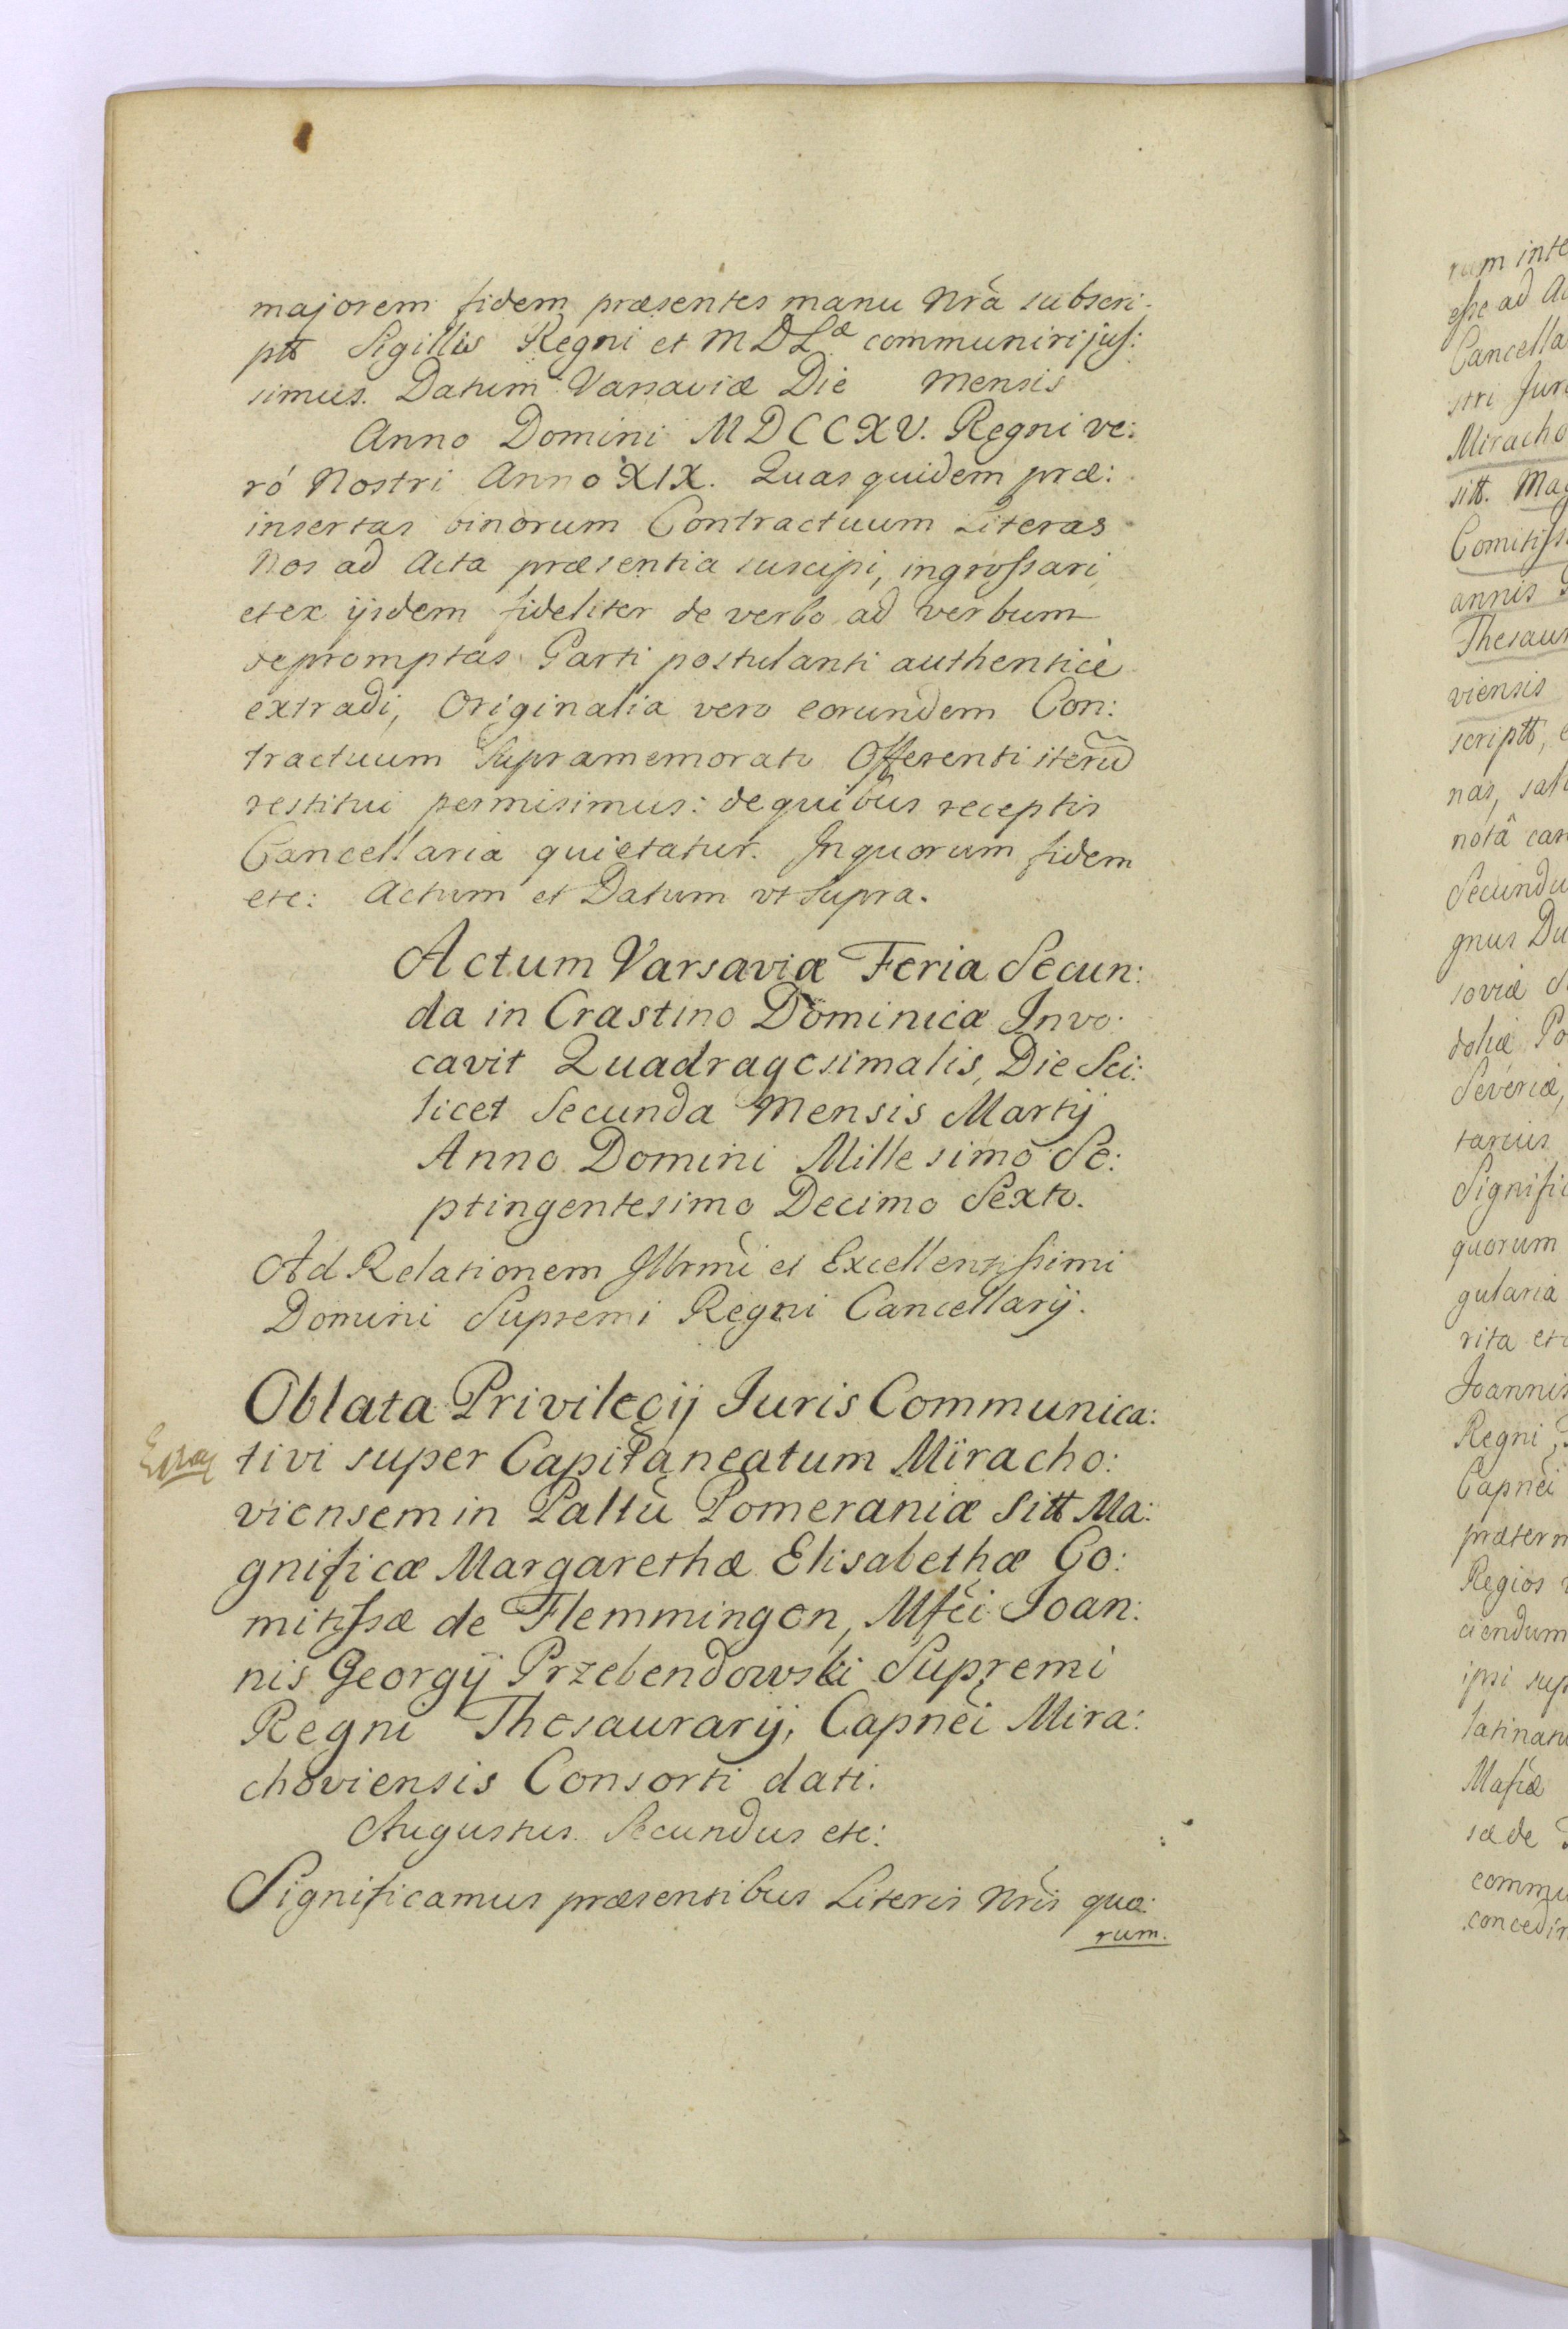 majorem fidem præsentes manu Nrã subscri-
ptt Sigillis Regni et M D Læ communiri jus:
simus. Datum Varsaviæ Die Mensis
Anno Domini MDCCXV. Regni ve:
ró Nostri Anno XIX. Quas quidem præ:
insertas binorum Contractuum Literas
Nos ad Acta præsentia suscipi, ingrossari,
et ex ijsdem fideliter de verbo ad verbum
depromptas Parti postulanti authenticè
extradi, Originalia vero eorundem Con:
tractuum Supramemorato Offerenti iterũ
restitui permisimus: de quibus receptis
Cancellaria quietatur. In quorum fidem
etc: Actum et Datum vt supra.
Actum Varsaviæ Feria Secun:
da in Crastino Dominicæ Invo:
cavit Quadragesimalis, Die Sci:
licet Secunda Mensis Martij
Anno Domini Millesimo Se:
ptingentesimo Decimo Sexto.
Ad Relationem Illrmi et Excellentissimi
Domini Supremi Regni Cancellarij.
Oblata Privilegij Iuris Communica:
tivi super Capitaneatum Miracho:
viensem in Paltũ Pomeraniæ Sitt Ma:
gnificæ Margarethæ Elisabethæ Co:
mitissæ de Flemmingen, Mfci Joan:
nis Georgij Przebendowski Supremi
Regni Thesaurarij, Capnei Mira:
choviensis Consorti dati.
Augustus Secundus etc:
Significamus præsentibus Literis Nris quo:
rum.
rum inte
esse ad A
Cancella
stri Jur
Miracho
sitt. Mag
Comitiss
annis
Thesaur
viensis
scriptt,
nas, sal
notâ can
Secundu
gnus Du
soviæ S
doliæ Po
Severiæ,
tarius
Signific
quorum
gularia
rita et
Joannis
Regni,
Capnei
præter
Regios
ciendum
ipsi sup
latinatu
Masæ
sæ de
commu
concedi